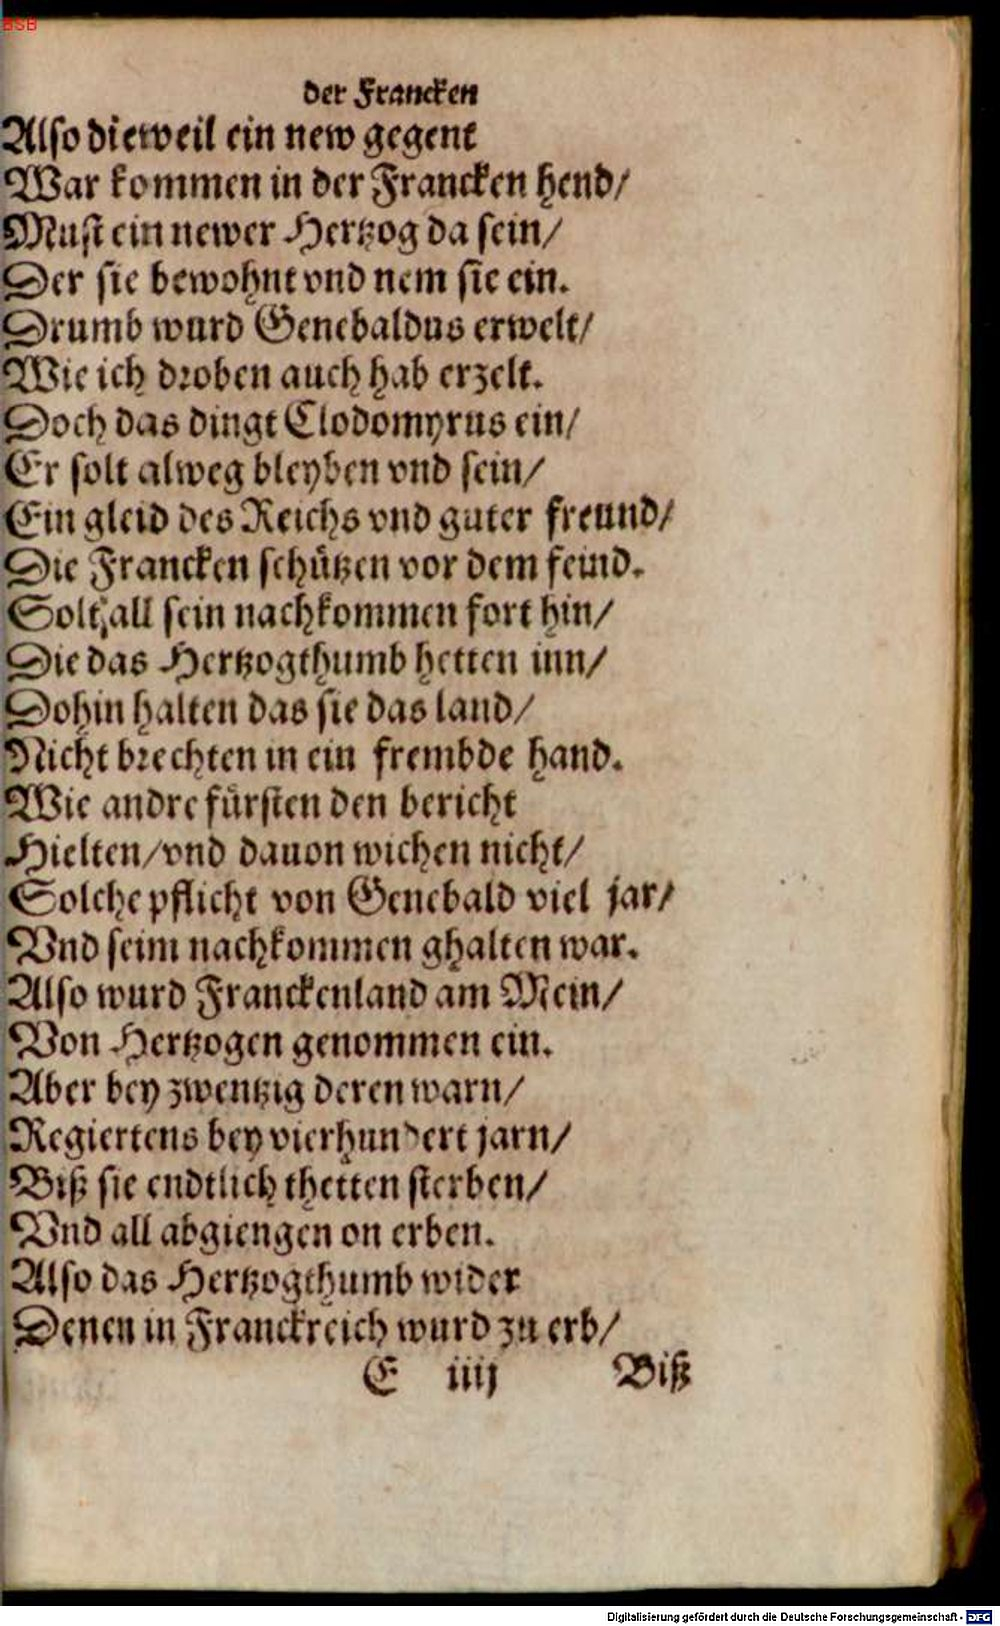 BSB
der Francken
Also dieweil ein new gegent
War kommen in der Francken hend/
Must ein newer Hertzog da sein/
Der sie bewohnt vnd nem sie ein.
Drumb wurd Genebaldus erwelt/
Wie ich droben auch hab erzelt.
Doch das dingt Clodomyrus ein/
Er solt alweg bleyben vnd sein/
Ein gleid des Reichs vnd guter freund/
Die Francken schützen vor dem feind.
Solt all sein nachkommen fort hin/
Die das Hertzogthumb hetten inn/
Dohin halten das sie das land/
Nicht brechten in ein frembde hand.
Wie andre fürsten den bericht
Hielten/vnd dauon wichen nicht/
Solche pflicht von Genebald viel jar/
Vnd seim nachkommen ghalten war.
Also wurd Franckenland am Mein/
Von Hertzogen genommen ein.
Aber bey zwentzig deren warn/
Regiertens bey vierhundert jarn/
Biß sie endtlich thetten sterben/
Vnd all abgiengen on erben.
Also das Hertzogthumb wider
Denen in Franckreich wurd zu erb/
E iiij Biß
Digitalisierung gefördert durch die Deutsche Forschungsgemeinschaft - DFG